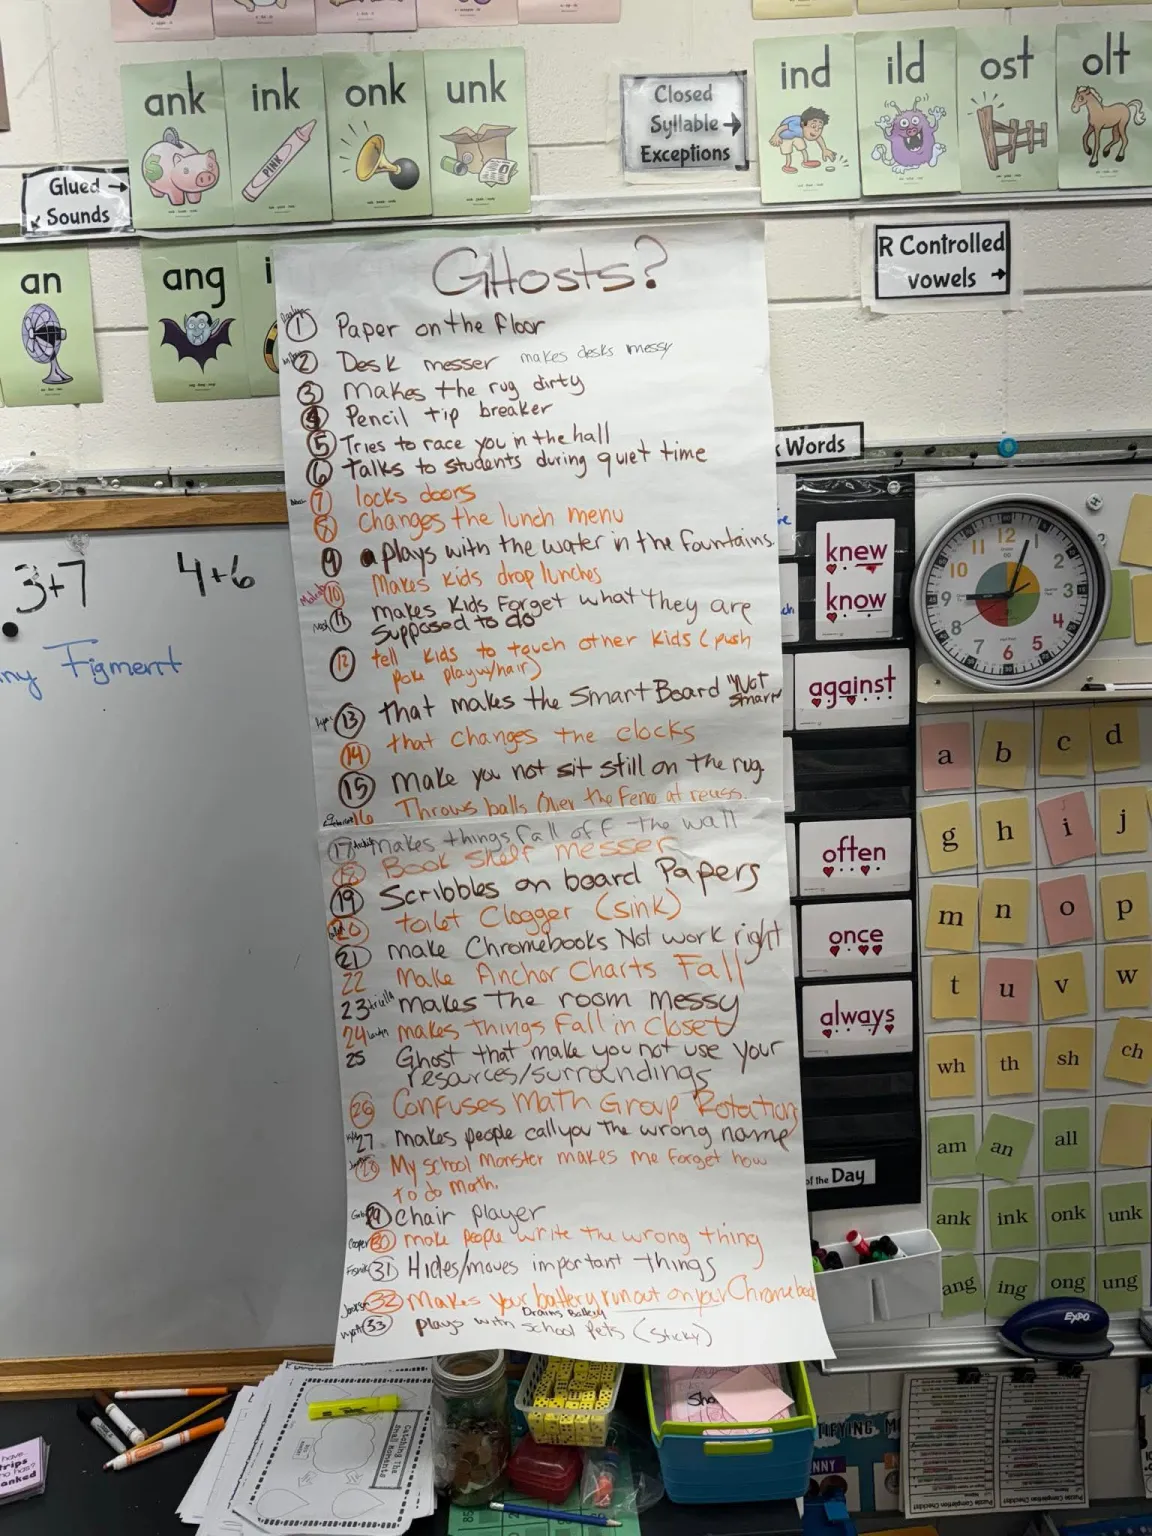 ank
ink
onk
unk
PINK
Closed
Syllable →
Exceptions
ind
ild
ost
olt
Glued →
Sounds
R Controlled
vowels →
an
ang
GHosts?
1 Paper on the floor
2 Desk messer makes desks messy
3 makes the rug dirty
4 Pencil tip breaker
5 Tries to race you in the hall
6 talks to students during quiet time
7 locks doors
8 Changes the lunch menu
9 plays with the water in the fountains.
10 Makes kids drop lunches
11 makes kids forget what they are
supposed to do
12 tell kids to touch other kids (push
poke play w/hair)
13 that makes the Smart Board "Not
Smart"
14 that changes the clocks
15 make you not sit still on the rug
16 Throws balls over the fence at recess.
17 makes things fall off the wall
18 Book shelf messer
19 Scribbles on board Papers
20 toilet Clogger (sink)
21 make Chromebooks Not work right
22 Make Anchor Charts Fall
23 makes the room messy
24 makes things fall in closet
25 Ghost that make you not use your
resources/surroundings
26 Confuses Math Group Rotation
27 makes people call you the wrong name
28 My school monster makes me forget how
to do math.
29 Chair player
Cooper 30 make people write the wrong thing
31 Hides/moves important things
Jackson 32 Makes your battery run out on your Chromebook
Drains Battery
Wyatt 33 plays with school pets (Sticky)
3+7
4+6
ny Figment
Words
knew
know
against
often
once
always
of the Day
12
1
2
3
4
5
6
7
8
9
10
11
a
b
c
d
g
h
i
j
m
n
o
p
t
u
v
w
wh
th
sh
ch
am
an
all
ank
ink
onk
unk
ang
ing
ong
ung
EXPO
Sha
Catching the
Small Moments